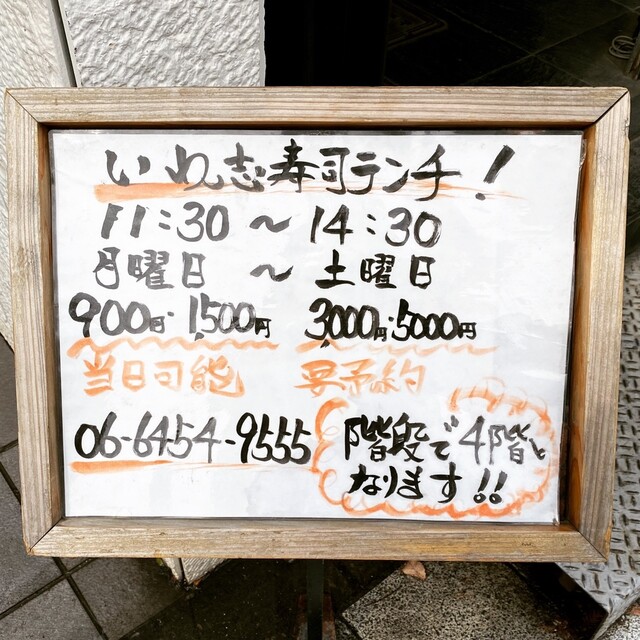 いわ志寿司ランチ!
11:30 ～ 14:30
月曜日 ～ 土曜日
900円・1,500円 3,000円・5000円
当日可能 要予約
06-6454-9555
階段で4階と
なります!!